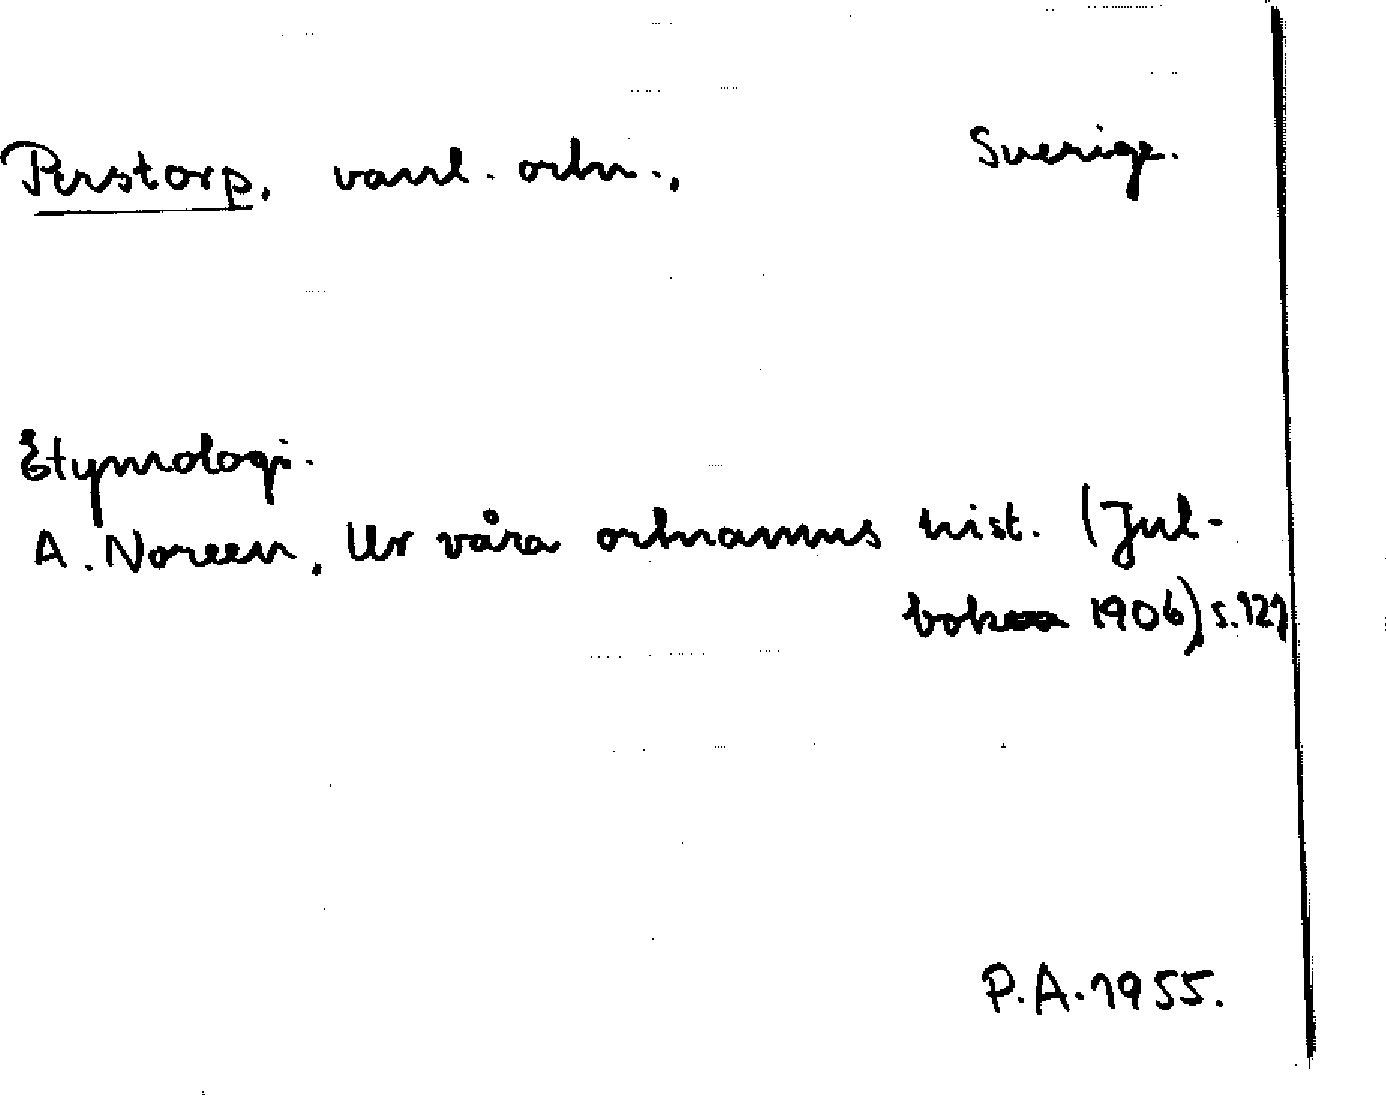 Perstorp, vanl. ortn., Sverige.
Etymologi.
A. Noreen, Ur våra ortnamns hist. (Jul-
boken 1906) s. 127
P.A. 1955.